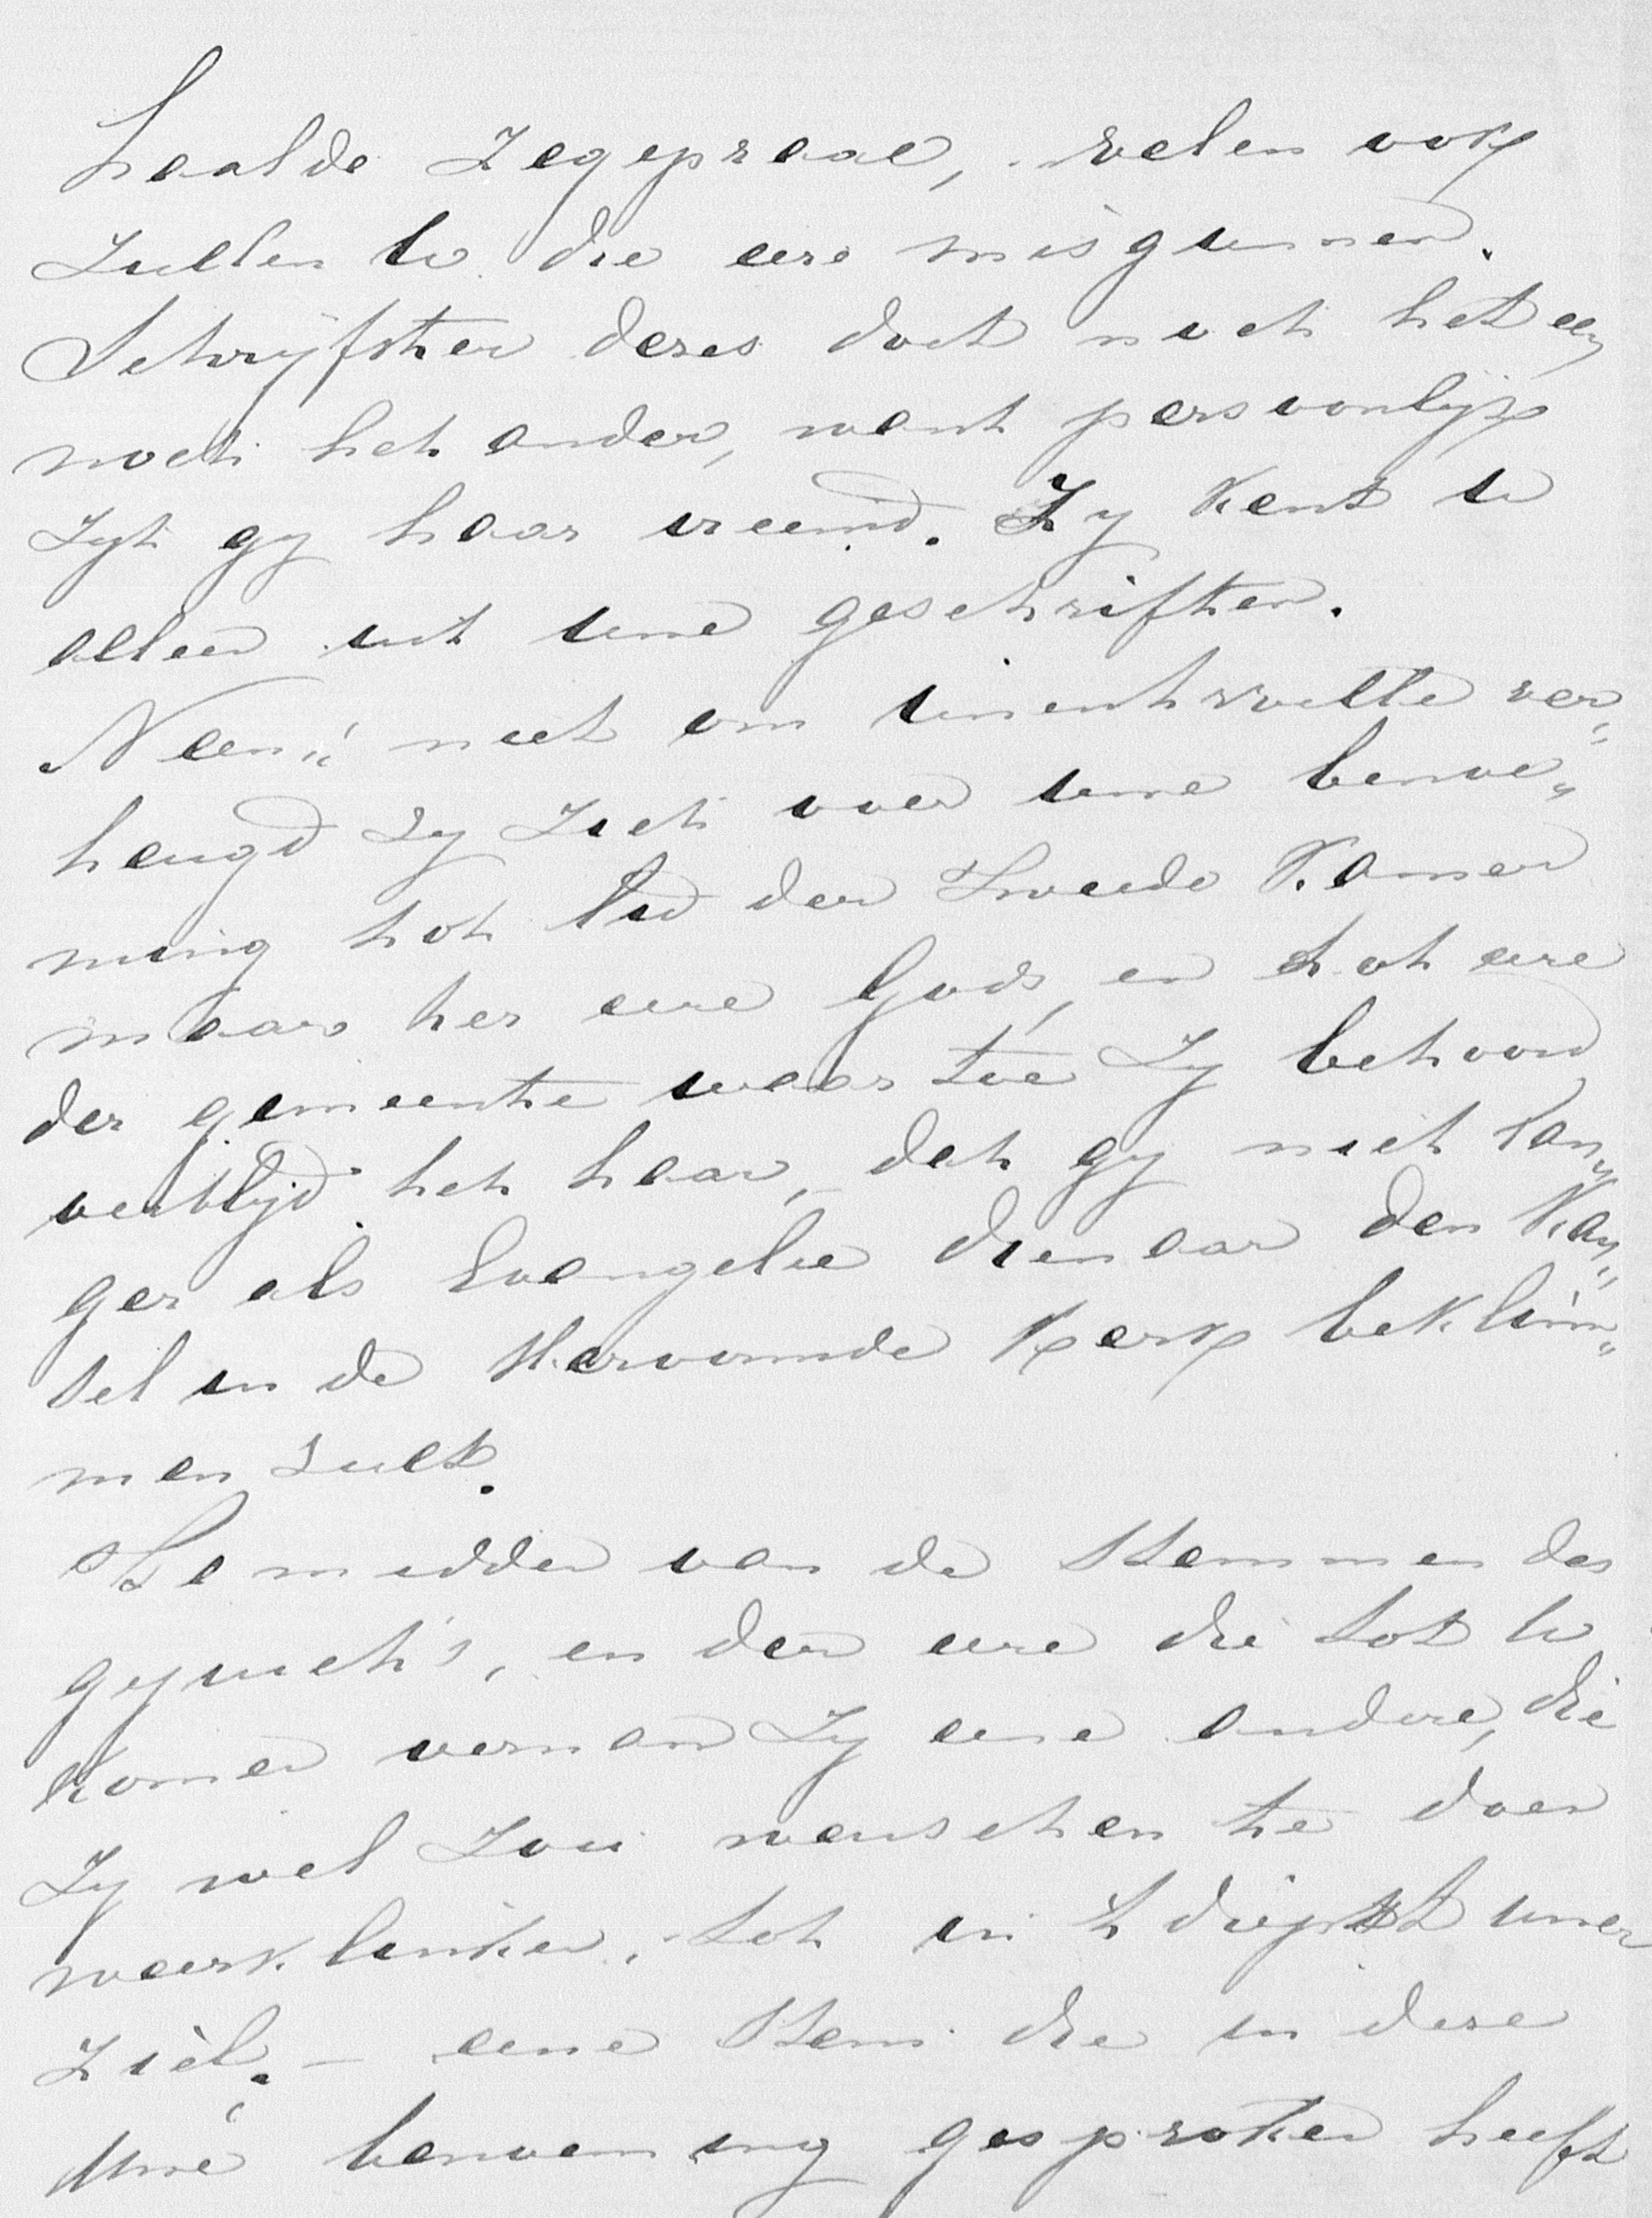 haalde zegepraal, velen ook
zullen U die eere misgunnen.
Schryfster dezes doet noch het een
noch het ander, want persoonlyk
zyt gy haar vreemd. Zy kent U
alleen uit uwe geschriften.
Neen! niet om Uwent wille ver„
heugd zy zich over uwe benoe„
ming tot lid der Tweede Kamer
maar ter eere Gods, en tot eere
der gemeente waartoe Zy behoord
verblyd het haar, dat gy niet lan„
ger als Evangelie dienaar den Kan„
sel in de Hervormde Kerk beklim„
men zult.
Te midden van de stemmen des
gejuich's, en der eere die tot U
komen vernam Zy eene andere, die
Zy wel zou wenschen te doen
weerklinken, tot in 't diepst uwer
ziel. – eene stem die in deze
Uwe benoeming gesproken heeft